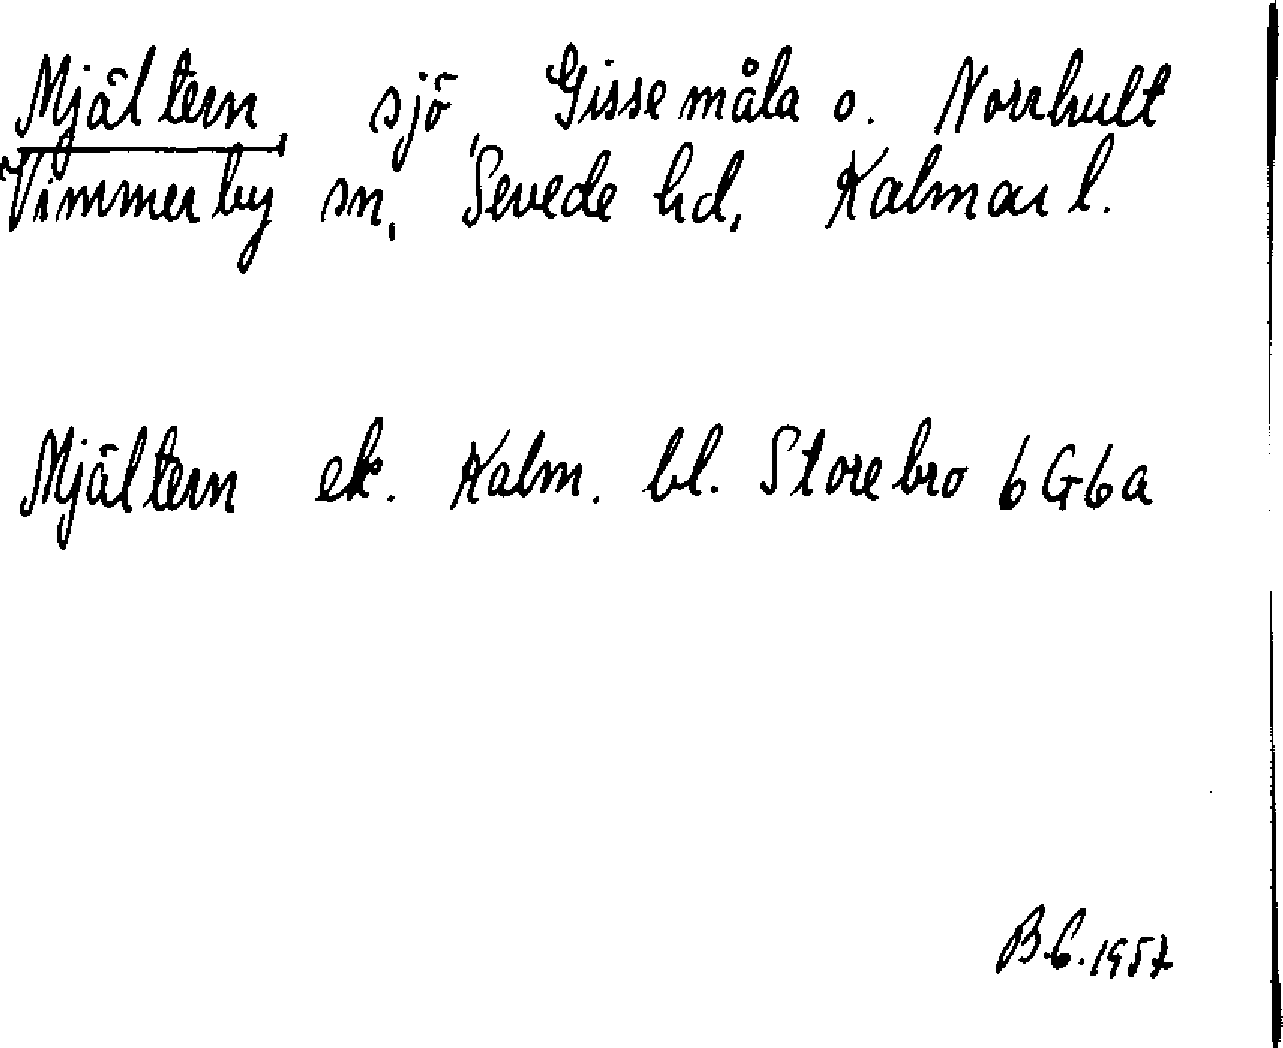 Mjältern, sjö, Gissemåla o. Norrhult
Vimmerby sn, Sevede hd, Kalmar l.
Mjältern ek. Kalm. bl. Storebro 6G6a
B.C. 1957